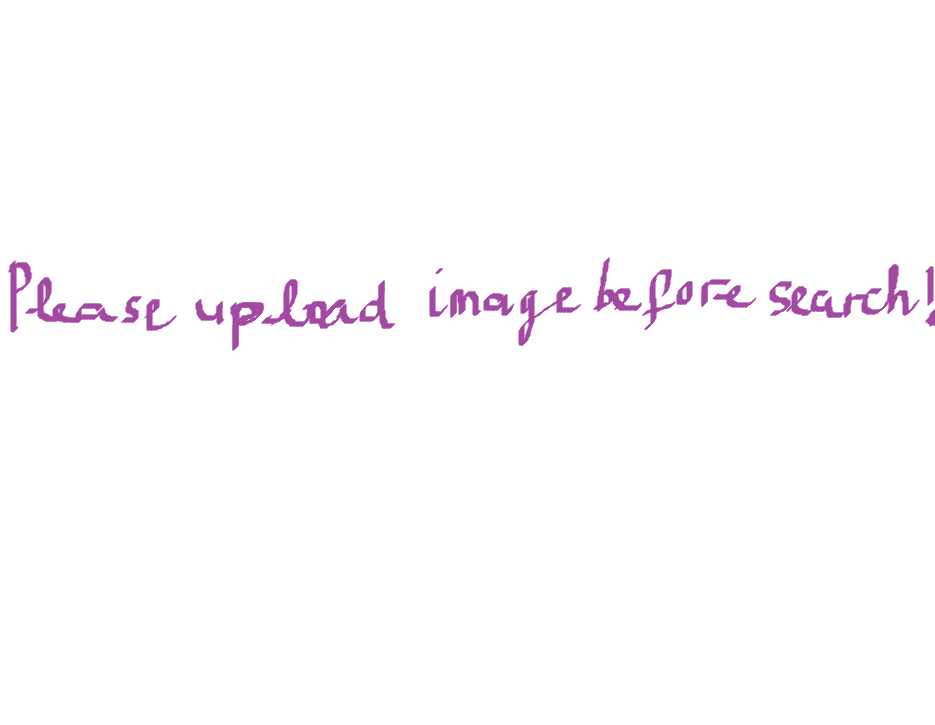 Please upload image before search!